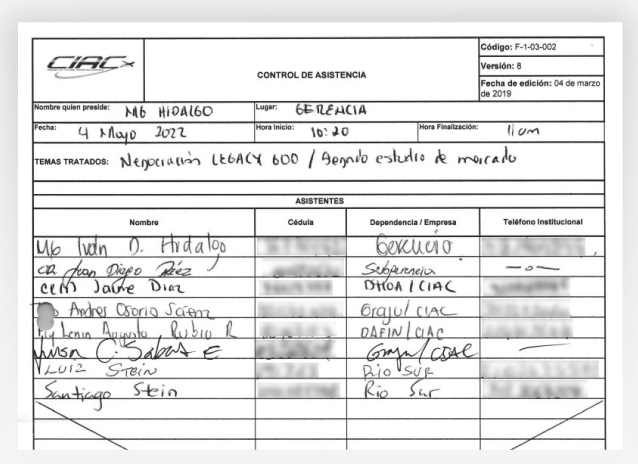 CIAC
CONTROL DE ASISTENCIA
Código: F-1-03-002
Versión: 8
Fecha de edición: 04 de marzo de 2019
Nombre quien preside: MG HIDALGO Lugar: GERENCIA
Fecha: 4 Mayo 2022 Hora Inicio: 10:20 Hora Finalización: 11 am
TEMAS TRATADOS: Negociación LEGACY 600 / Segundo estudio de mercado
ASISTENTES
Nombre Cédula Dependencia / Empresa Teléfono Institucional
MG Iván D. Hidalgo Gerencia
CR Juan Diego Páez Subgerencia —o—
Jaime Diaz DHOA / CIAC
Andres Osorio Grajul CIAC
My Lenin Augusto Rubio R DAFIN / CIAC
C. E / CIAC —
LUIZ STEIN RIO SUR
Santiago Stein Rio Sur